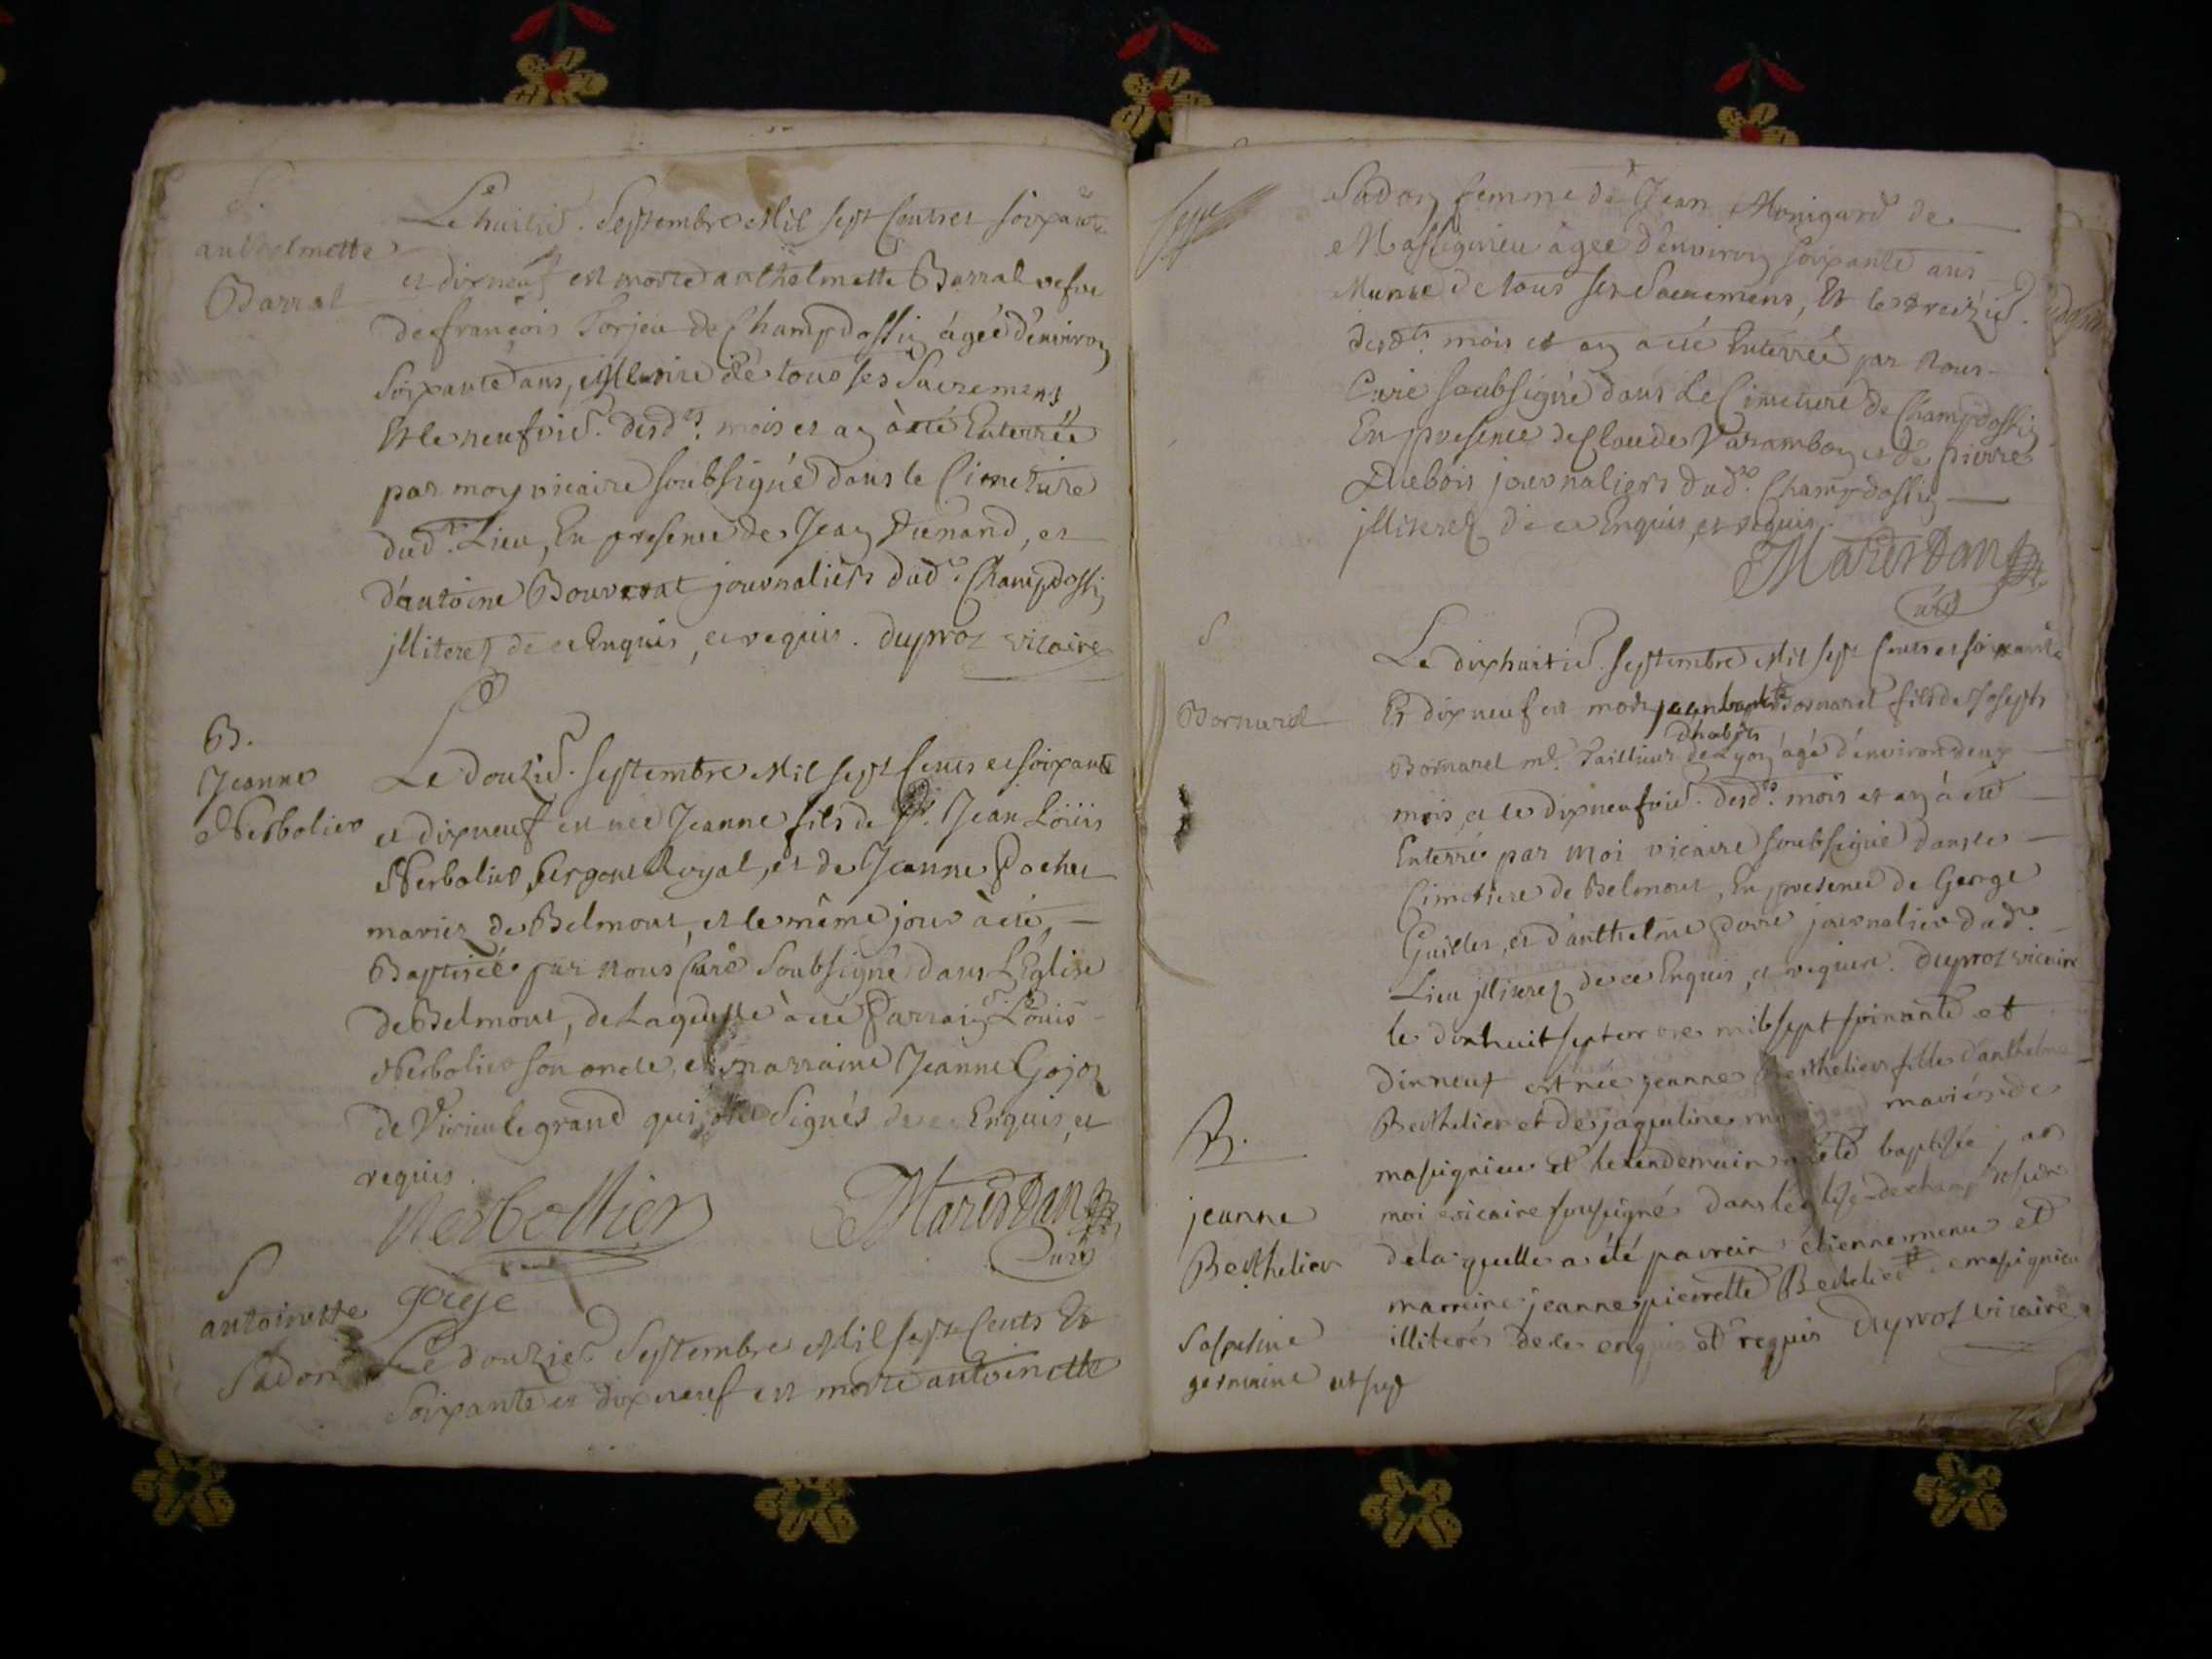 S.
anthelmette
Barral
Le huitie. Septembre Mil sept Cents et soixante
et dixneuf est morte anthelmette Barral vefve
de françois Torjeu de Champdossin agée d'environ
soixante ans, Munie de tous ses Sacremens
Et le neufvie. desdts. mois et an à été Enterrée
par moy vicaire soubsigné dans le Cimetiere
dudt. Lieu, En presence de Jean Dunand, et
d'antoine Bouvrat journaliers dudt. Champdossin
jlliterez de ce Enquis, et requis. Duproz vicaire
B.
Jeanne
Nerbolier
Le douzie. septembre Mil sept Cents et soixante
et dixneuf est née Jeanne fils de Sr. Jean Loüis
Nerbolier sergent Royal, et de Jeanne Pochet
mariez de Belmont, et le même jour à été
Baptisée par nous Curé Soubsigné dans L'Eglise
de Belmont, de Laquelle à été Parrain Louis
Nerbolier son oncle, et marraine Jeanne Gojoz
de Virieu le grand qui signés de ce Enquis, et
requis.
Nerbollier Marestan
Curé
goyse
S
antoinette
Sadon
Le douzie Septembre Mil sept Cents Et
Soixante et dix neuf est morte antoinette
Sadon femme de Jean Monigard de
Massignieu agée d'environ soixante ans
Munie de tous ses Sacremens, Et le treizie.
desdts. mois et an a été Enterrée par nous
Curé soubsigné dans Le Cimetiere de Champdossin
En presence de Claude Varambon et de pierre
Duebois journaliers dudt. Champdossin
jlliterez de ce Enquis, et requis.
Marestan
Curé
S
Bornarel
Le dixhuitie. septembre Mil sept Cents et soixante
Et dixneuf est mort jean baptiste Bornarel fils de Joseph
Bornarel md. Tailleur d'habits de Lyon agé d'environ deux
mois, et le dixneufvie. desdts. mois et an à été
Enterré par Moi vicaire soubsigné dans le
Cimetiere de Belmont, En presence de George
Guillet, et d'anthelme Dore journaliers dudt.
Lieu jlliterez de ce Enquis, et requis. Duproz vicaire
B.
jeanne
Berthelier
le dixhuit septembre mil sept soixante et
dixneuf est née jeanne Berthelier fille d'anthelme
Berthelier et de jaqueline mariés de
massignieu et le lendemain a été baptisée par
moi vicaire soussigné dans l'église de champdossin
de laquelle a été parrein etienne menu et
marreine jeanne pierrette Berthelier de massignieu
illiterés de ce enquis et requis Duproz vicaire
germaine